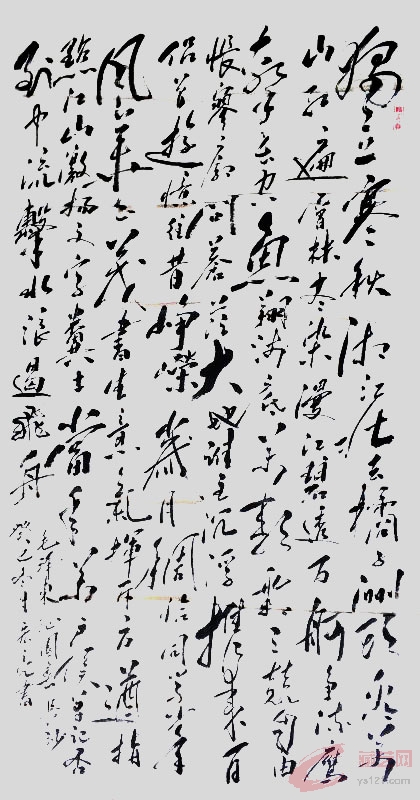 獨立寒秋湘江北去橘子洲頭看萬
山紅遍層林盡染漫江碧透百舸爭流鷹
擊長空魚翔淺底萬類霜天競自由
悵寥廓問蒼茫大地誰主沉浮攜來百
侶曾遊憶往昔崢嶸歲月稠恰同學少年
風華正茂書生意氣揮斥方遒指
點江山激揚文字糞土當年萬戶侯曾記否
到中流擊水浪遏飛舟
毛澤東沁園春長沙
癸巳